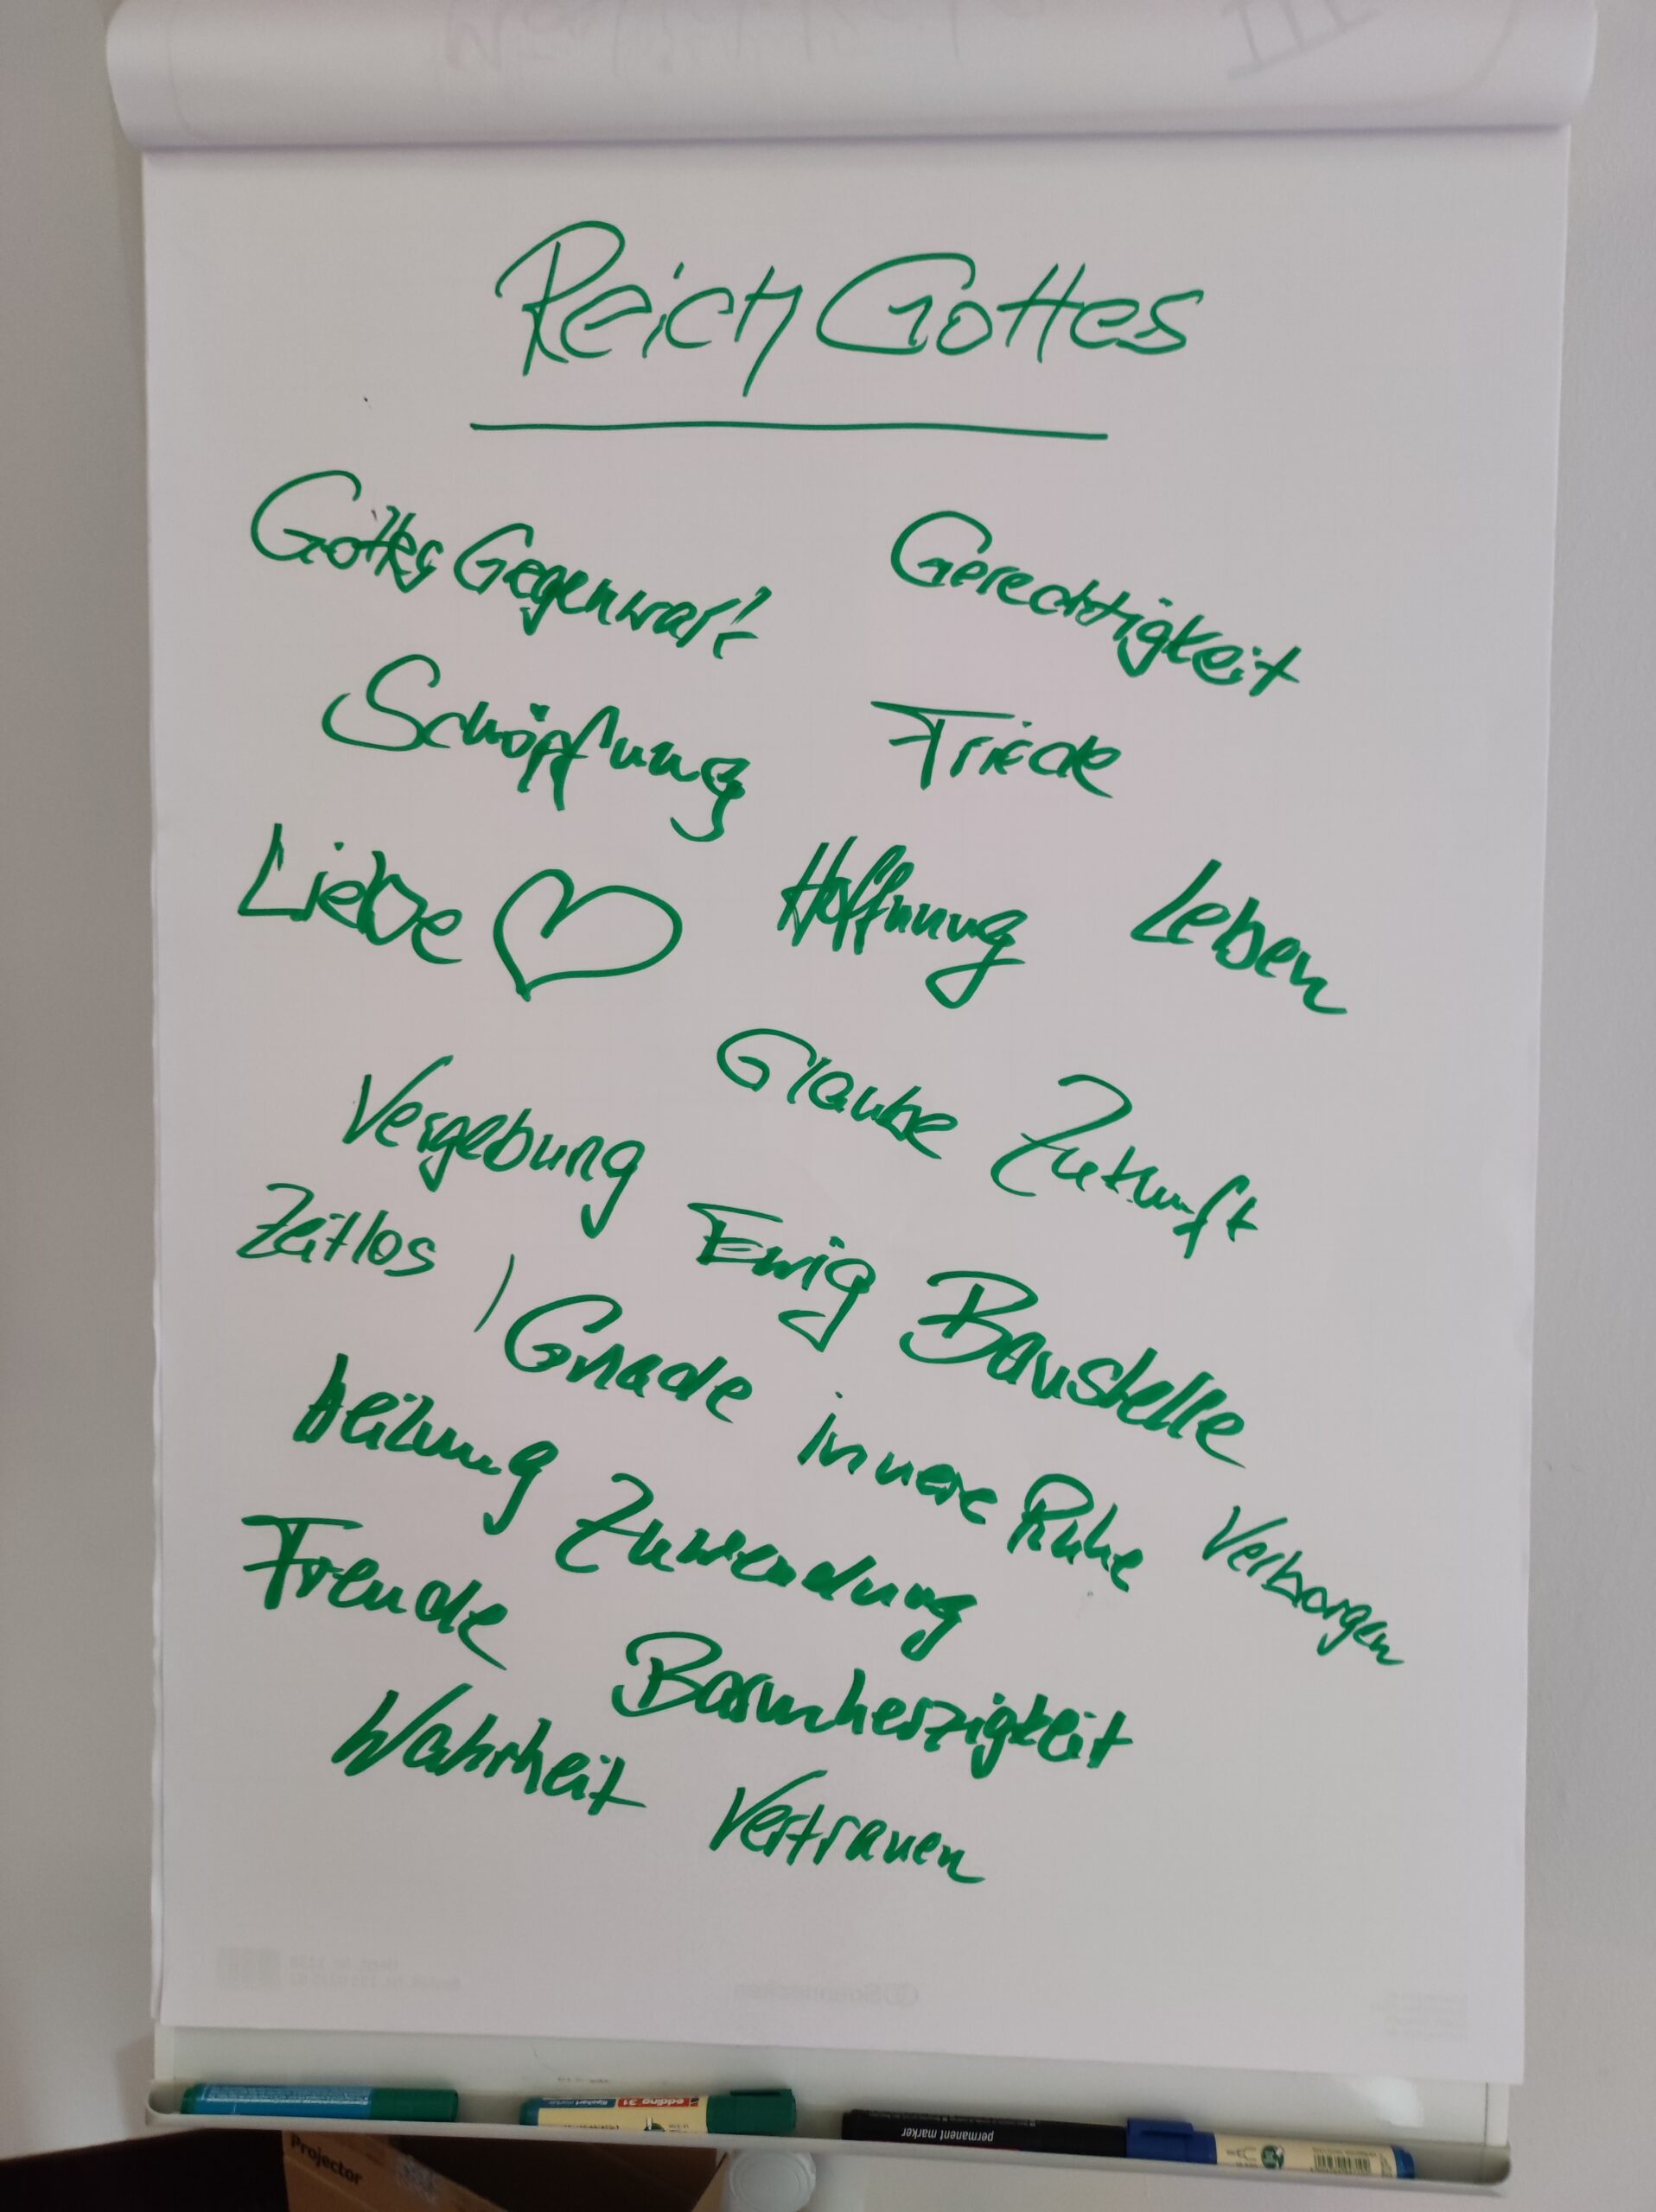 Reich Gottes
Gottes Gegenwart Gerechtigkeit
Schöpfung Friede
Liebe Hoffnung Leben
Vergebung Glaube Zukunft
Zeitlos Ewig Baustelle
Gnade innere Ruhe Verborgen
Heilung Zuwendung
Freude Barmherzigkeit
Wahrheit Vertrauen
edding 31
permanent marker
Projector